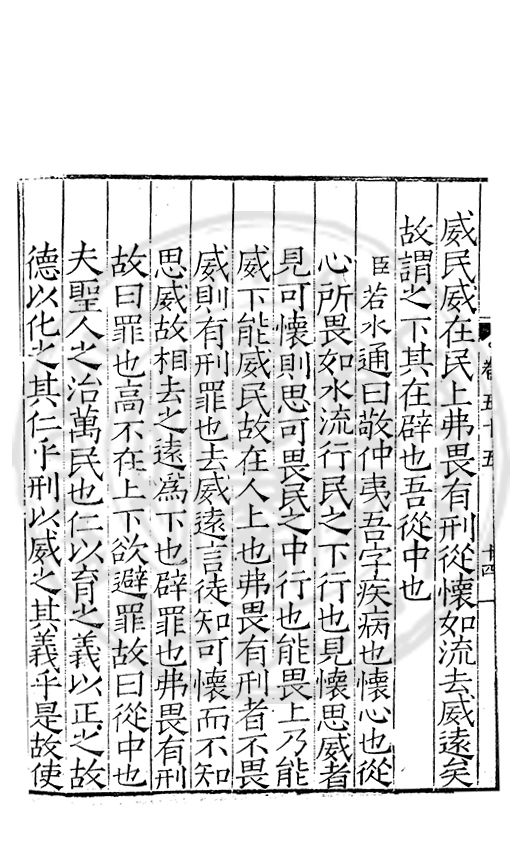 威民威在民上弗畏有刑從懷如流去威遠矣
故謂之下其在辟也吾從中也
臣若水通曰敬仲夷吾字疾病也懷心也從
心所畏如水流行民之下行也見懷思威者
見可懷則思可畏民之中行也能畏上乃能
威下能威民故在人上也弗畏有刑者不畏
威則有刑罪也去威遠言徒知可懷而不知
思威故相去之遠爲下也辟罪也弗畏有刑
故曰罪也高不在上下欲避罪故曰從中也
夫聖人之治萬民也仁以育之義以正之故
德以化之其仁乎刑以威之其義乎是故使
卷五十五
十四